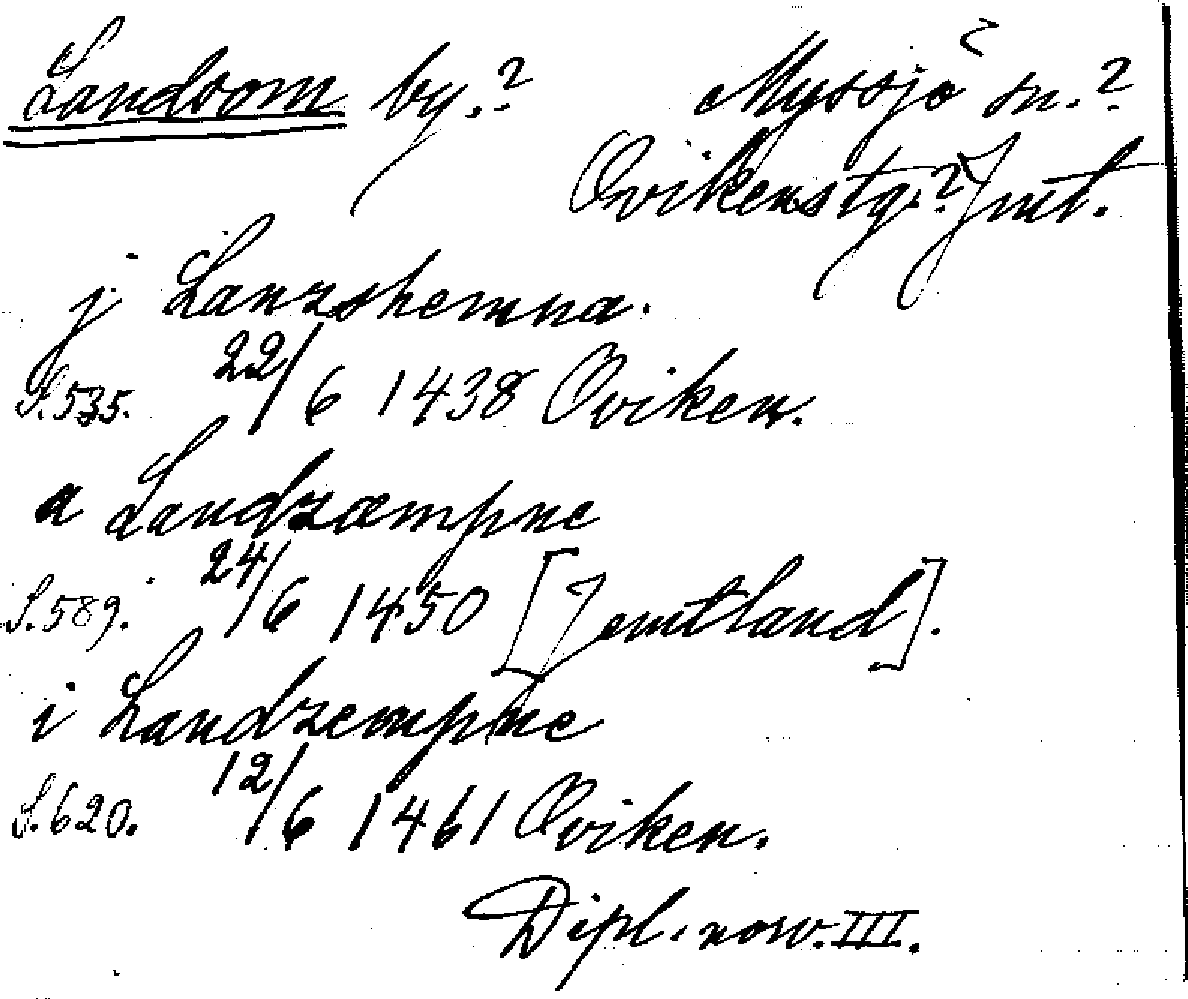 Landsom by.? Myssjö sn.?
Ovikens tg.? Jmt.
j Lanzshemna.
S. 535. 22/6 1438 Oviken.
a Landzæmpne
S. 589. 24/6 1450 [Jemtland].
i Landzempne
S. 620. 12/6 1461 Oviken.
Dipl. norv. III.